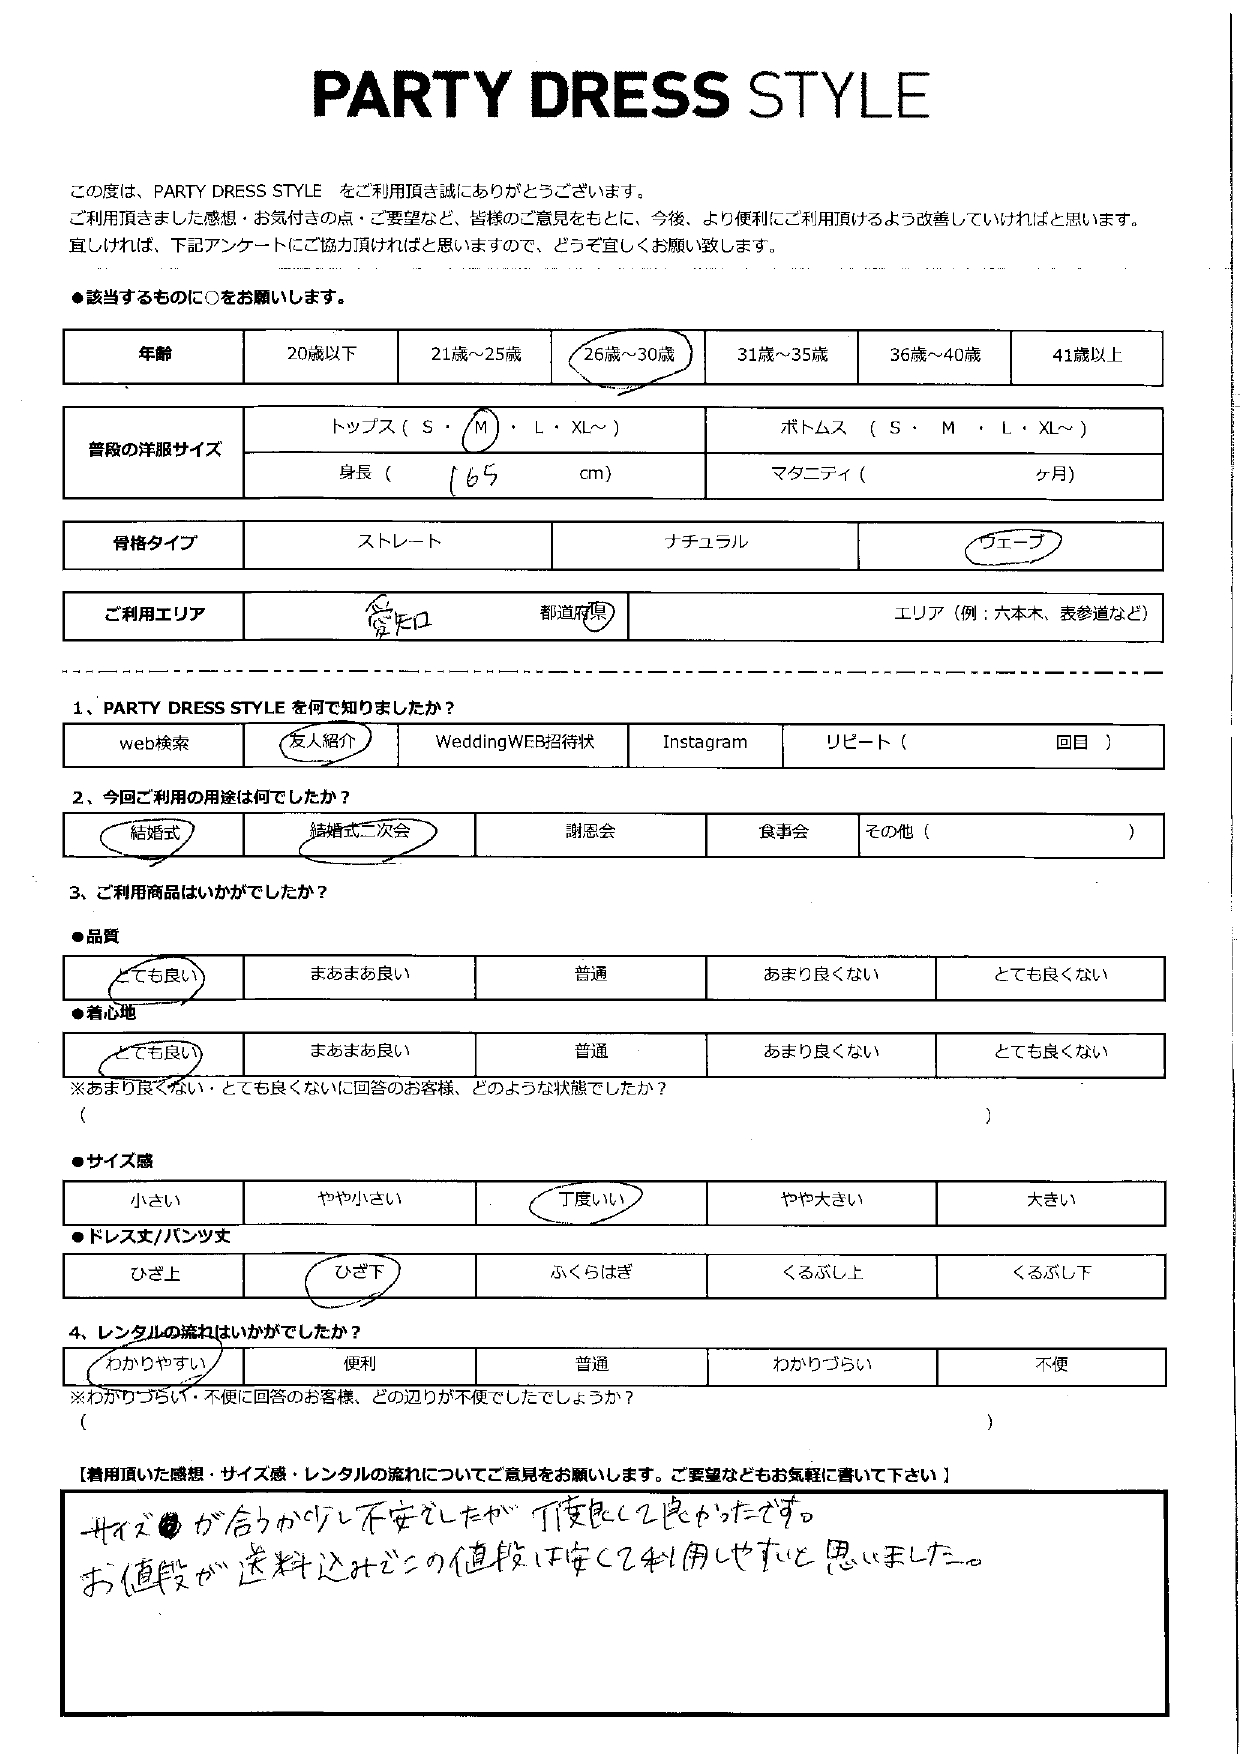 PARTY DRESS STYLE
この度は、PARTY DRESS STYLE　をご利用頂き誠にありがとうございます。
ご利用頂きました感想・お気付きの点・ご要望など、皆様のご意見をもとに、今後、より便利にご利用頂けるよう改善していければと思います。
宜しければ、下記アンケートにご協力頂ければと思いますので、どうぞ宜しくお願い致します。
●該当するものに○をお願いします。
年齢 20歳以下 21歳～25歳 26歳～30歳 31歳～35歳 36歳～40歳 41歳以上
普段の洋服サイズ トップス ( S ・ M ・ L ・ XL～ ) ボトムス ( S ・ M ・ L ・ XL～ )
身長 ( 165 cm) マタニティ ( ヶ月)
骨格タイプ ストレート ナチュラル ウェーブ
ご利用エリア 愛知 都道府県 エリア（例：六本木、表参道など）
1、PARTY DRESS STYLE を何で知りましたか？
web検索 友人紹介 WeddingWEB招待状 Instagram リピート ( 回目 )
2、今回ご利用の用途は何でしたか？
結婚式 結婚式二次会 謝恩会 食事会 その他 ( )
3、ご利用商品はいかがでしたか？
●品質
とても良い まあまあ良い 普通 あまり良くない とても良くない
●着心地
とても良い まあまあ良い 普通 あまり良くない とても良くない
※あまり良くない・とても良くないに回答のお客様、どのような状態でしたか？
( )
●サイズ感
小さい やや小さい 丁度いい やや大きい 大きい
●ドレス丈/パンツ丈
ひざ上 ひざ下 ふくらはぎ くるぶし上 くるぶし下
4、レンタルの流れはいかがでしたか？
わかりやすい 便利 普通 わかりづらい 不便
※わかりづらい・不便に回答のお客様、どの辺りが不便でしたでしょうか？
( )
【着用頂いた感想・サイズ感・レンタルの流れについてご意見をお願いします。ご要望などもお気軽に書いて下さい 】
サイズが合うか少し不安でしたが 丁度良くて良かったです。
お値段が送料込みでこの値段は安くて利用しやすいと思いました。